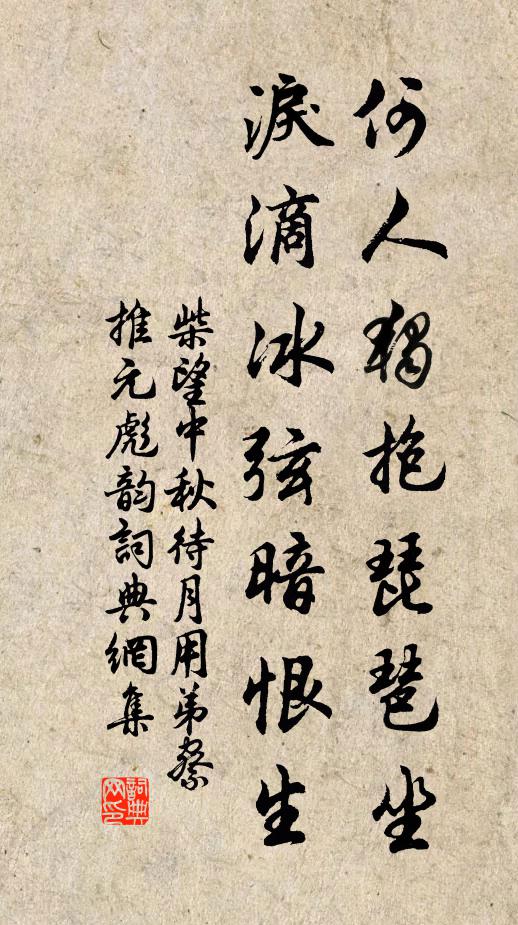 何人獨抱琵琶坐
淚滴冰弦暗恨生
柴望中秋待月用弟察
推元彪韵詞典網集
詞典网印